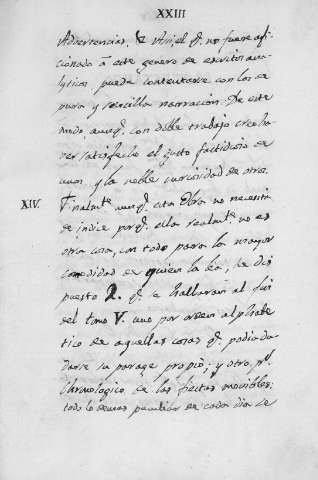 XXIII
Advertencias. Y Aquel q. no fuere afi-
cionado à este genero de escritos ana-
lyticos puede contentarse con los de
pura y sencilla narracion. De este
modo, aunq. con doble trabajo creo ha-
ver satisfecho el gusto fastidioso de
unos, y la noble curiosidad de otros.
XIV. Finalmte. aunq. esta Obra no necesita
de indice porq. ella realmte. no es
otra cosa, con todo para la mayor
comodidad de quien la lea, he dis
puesto 2. q. se hallaran al fin
del tomo V. uno por orden alphabe
tico de aquellas cosas q. podia du
darse su parage propio; y otro pr.
Chronologico de las fiestas movibles:
todo lo demas particular de cada dia se